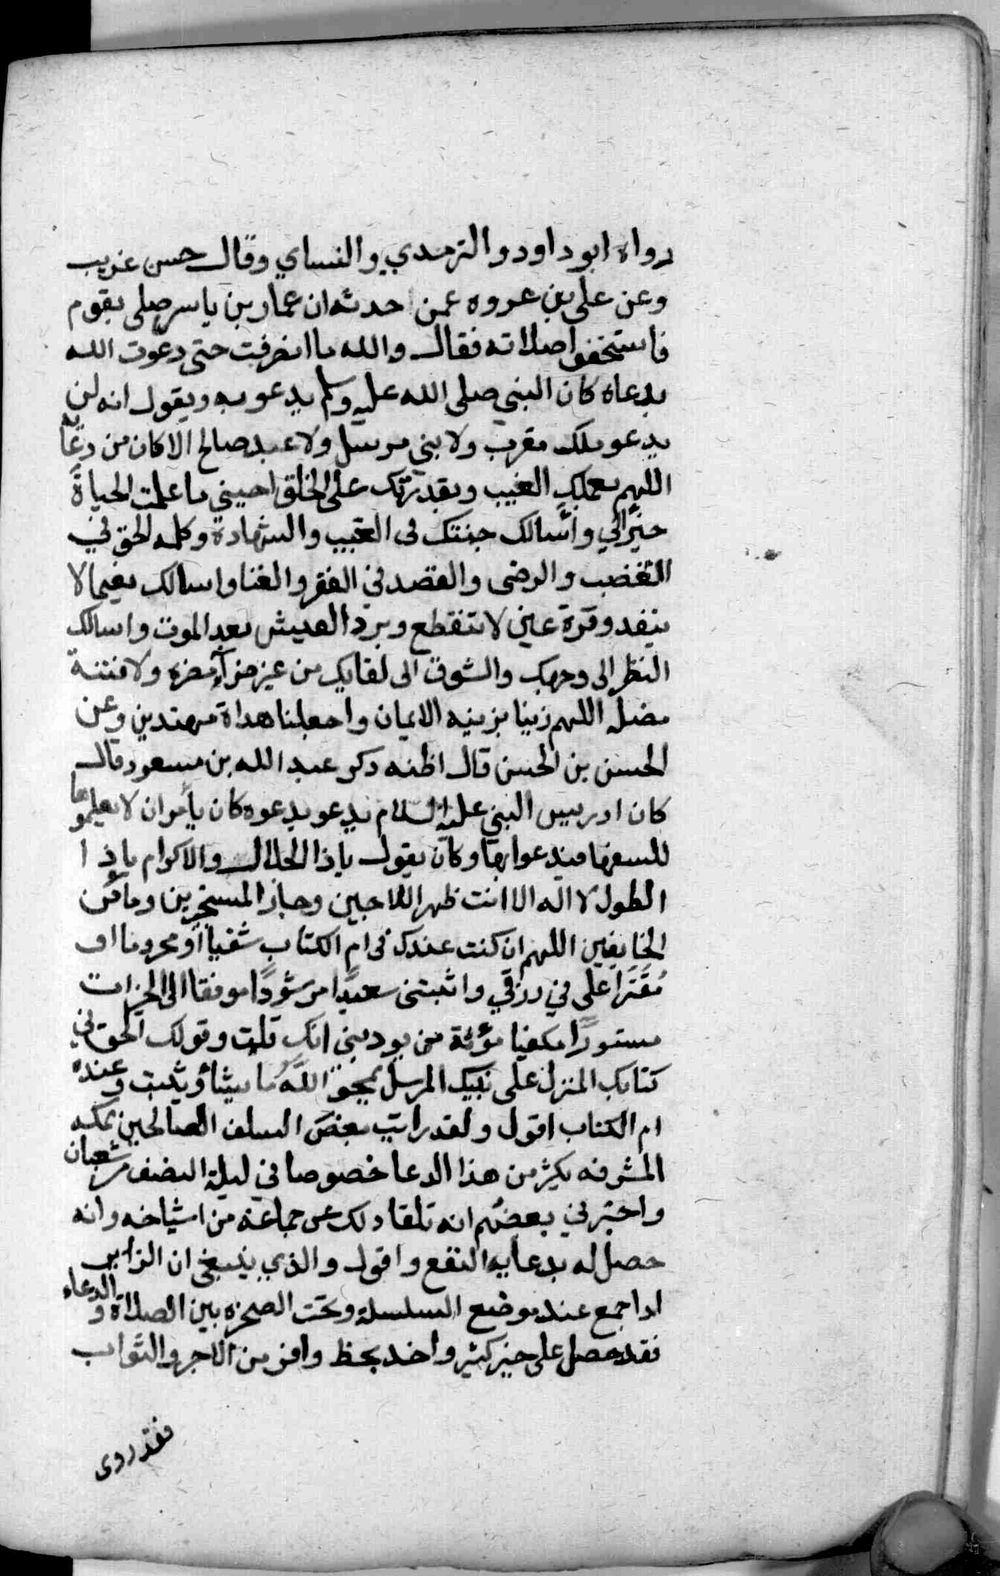 رواه ابو داود والترمدي والنساي وقال حسن غريب
وعن علي بن عروه عمن حدثه ان عمار بن ياسر صلى بقوم
فاستخفوا صلاته فقال والله ما انصرفت حتى دعوت الله
بدعاه كان النبي صلى الله عليه وسلم يدعو به ويقول انه لن
يدعو ملك مقرب ولا نبي مرسل ولا عبد صالح الا كان من دعايه
اللهم بعملك الغيب وبقدرتك على الخلق احيني ما علمت الحياة
خيرا لي واسالك خشيتك في الغيب والشهادة وكلمه الحق في
الغضب والرضى والقصد في الفقر والغنا واسالك نعيما لا
ينفد وقرة عين لا تنقطع وبرد العيش بعد الموت واسالك
النظر الى وجهك والشوق الى لقايك من غير ضرآء مضره ولا فتنة
مضله اللهم زينا بزينه الايمان واجعلنا هداة مهتدين وعن
الحسن بن الحسن قال اظنه دكر عبد الله بن مسعود قال
كان ادريس النبي عليه السلام يدعو بدعوه كان يأمر ان لا يعلموها
للسفها فيدعوا بها وكان يقول ياذا الجلال والاكرام ياذا
الطول لا اله الا انت ظهر اللاجين وجار المستجيرين ومامن
الخايفين اللهم ان كنت عندك في ام الكتاب شقيا او محروما او
مُقَتَرا على في رزقي واثبتني سعيدًا مرشودًا موفقا الى الخيرات
مستورًا مكفيا مؤنة من يوديني انك قلت وقولك الحق في
كتابك المنزل على نبيك المرسل يمحو اللَّهُ ما يشأ ويثبت وعنده
ام الكتاب اقول ولقد رايت بعض السلف الصالحين بمكه
المشرفه يكثر من هذا الدعا خصوصا في ليلة النصف من شعبان
واخبرني بعضهم انه تلقا دلك عن جماعة من اشياخه وانه
حصل له بدعايه النفع واقول والذي ينبغي ان الزاير
ادا جمع عند موضع السلسلة وتحت الصخره بين الصلاة والدعاء
فقد حصل على خير كثير واخد بحظ وافر من الاجر والثواب
فقد روى